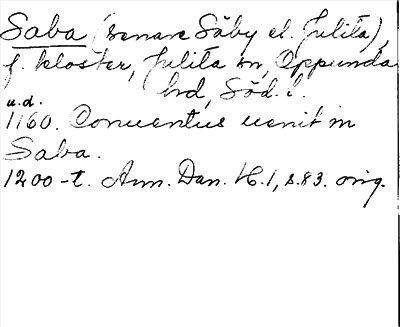 Saba (senare Säby el. Julita),
f. kloster, Julita sn, Oppunda
hd, Söd. l.
u.d.
1160. Conuentus uenit in
Saba.
1200-t. Ann. Dan. H. 1, s. 83. orig.